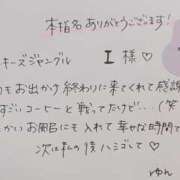 本指名ありがとうございます!
キーズジャングル I様♡
つもお出かけ終わりに来てくれて感謝
すごいコーヒーと戦ってたけど…(笑
かいお風呂にも入れて幸せな時間で
次は私の後ハシゴして♡
ゆん